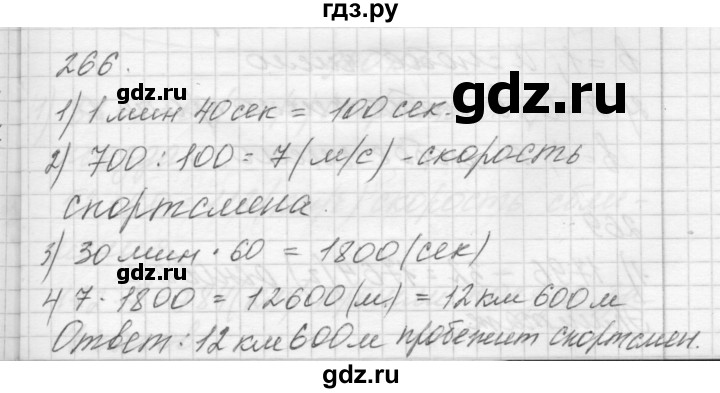 гдз.ру
266.
gdz.ru gdz.ru
1) 1 мин 40 сек = 100 сек.
2) 700 : 100 = 7 (м/с) - скорость
спортсмена.
gdz.ru gdz.ru
3) 30 мин · 60 = 1800 (сек)
4) 7 · 1800 = 12600 (м) = 12 км 600 м
Ответ: 12 км 600 м пробежит спортсмен.
gdz.ru